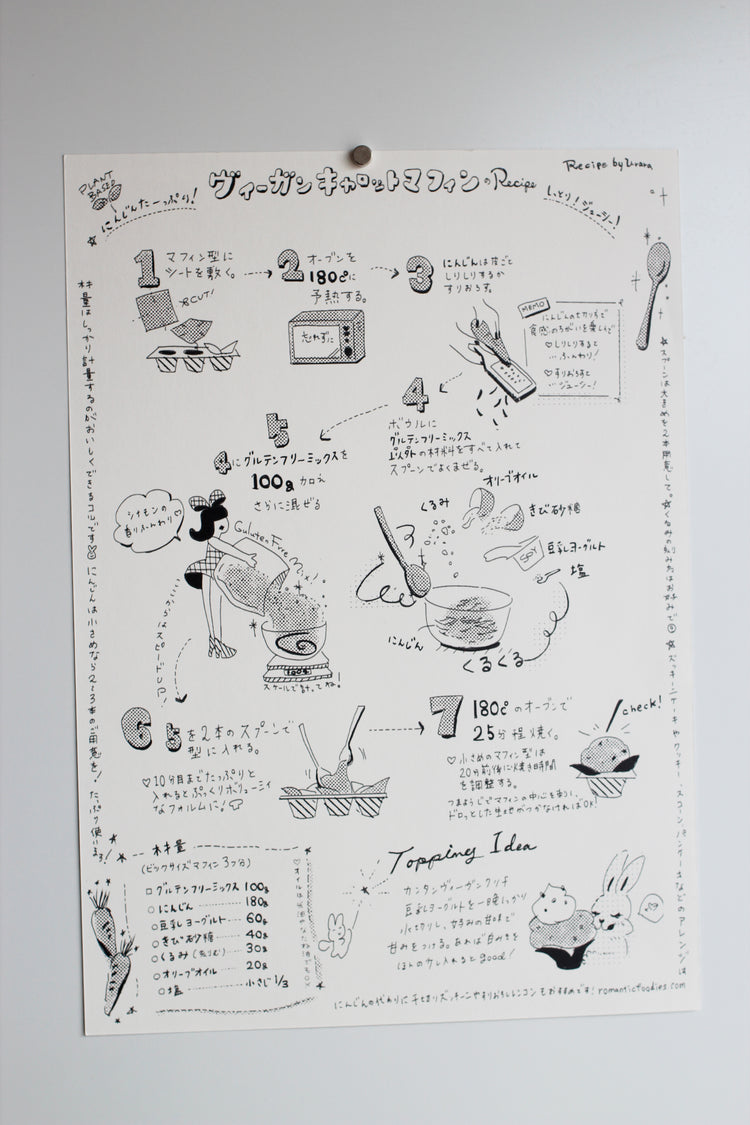 PLANT
BASED
にんじんたーっぷり!
ヴィーガンキャロットマフィンのRecipe
しっとり!ジューシー!
Recipe by Urara
1
マフィン型に
シートを敷く。
CUT!
2
オーブンを
180℃に
予熱する。
忘れずに
3
にんじんは皮ごと
しりしりするか
すりおろす。
MEMO
にんじんのセカリ方で
食感のちがいを楽しんで
♡しりしりすると
…ふんわり!
♡すりおろすと
…ジューシー!
4
ボウルに
グルテンフリーミックス
以外の材料をすべて入れて
スプーンでよくまぜる。
オリーブオイル
くるみ
きび砂糖
SOY
豆乳ヨーグルト
塩
にんじん
くるくる
5
4にグルテンフリーミックスを
100g加え
さらに混ぜる
シナモンの
香りふんわり♡
Guluten Free Mix!
100g
スケールで計ってね!
ここからはスピードUP!
6
5を2本のスプーンで
型に入れる。
♡10分目までたっぷりと
入れるとぷっくりボリューミィ
なフォルムに!
7
180℃のオーブンで
25分程焼く。
♡小さめのマフィン型は
20分前後に焼き時間
を調整する。
つまようじでマフィンの中心を刺し、
ドロッとした生地がつかなければOK!
check!
材量はしっかり計量するのがおいしくできるコツです にんじんは小さめなら2~3本のご用意を! たっぷり使いますよ!
☆スプーンは大きめを2本用意して。☆くるみの刻み方はお好みで ☆ズッキーニケーキやクッキー、スコーン、パンケーキなどのアレンジは
材量
(ビッグサイズマフィン3つ分)
グルテンフリーミックス 100g
にんじん 180g
豆乳ヨーグルト 60g
きび砂糖 40g
くるみ(刻む) 30g
オリーブオイル 20g
塩 小さじ1/3
Topping Idea
カンタンヴィーガンクリーム
豆乳ヨーグルトを一晩しっかり
水切りし、お好みの甘味で
甘みをつける。あれば
ほんの少し入れるとgood!
にんじんの代わりにすりおろしズッキーニやすりおろしレンコンもおすすめです! romanticfoodies.com